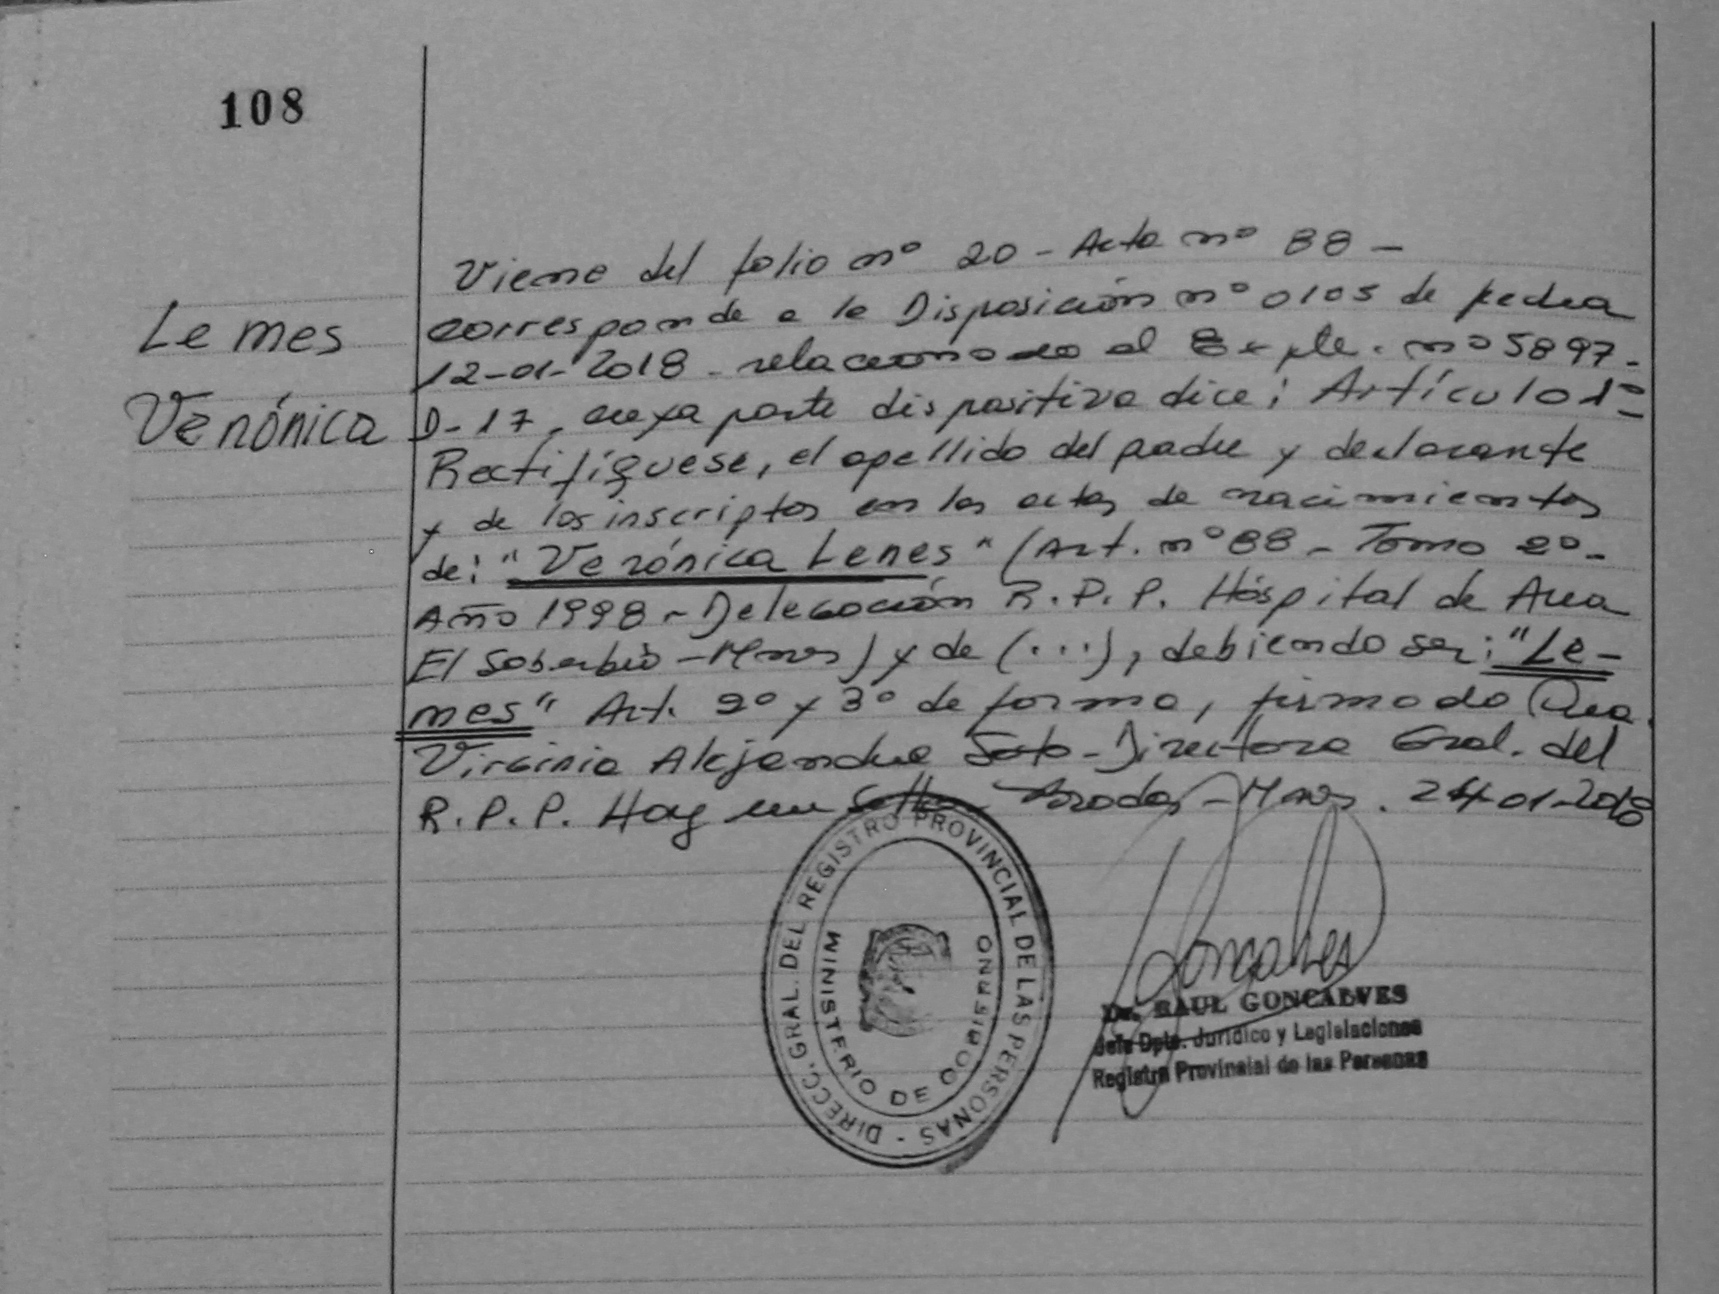 108
Lemes
Verónica
Viene del folio nº 20 - Acta nº 88 -
corresponde a la Disposición nº 0105 de fecha
12-01-2018 - relacionado al Expte. nº 5897-
D-17, cuya parte dispositiva dice: Artículo 1º
Rectifíquese, el apellido del padre y declarante
y de los inscriptos en las actas de nacimientos
de: "Verónica Lenes" (Act. nº 88 - Tomo 2º -
Año 1998 - Delegación R.P.P. Hospital de Area
El Soberbio - Mnes) y de (...), debiendo ser: "Le-
mes" Art. 2º y 3º de forma, firmado
Virginia Alejandra Soto - Directora Gral. del
R.P.P. Hay un Sello Posadas - Mnes. 24-01-2018
DIRECC. GRAL. DEL REGISTRO PROVINCIAL DE LAS PERSONAS -
MINISTERIO DE GOBIERNO
Goncalves
Dr. RAUL GONCALVES
Jefe Dpto. Jurídico y Legislaciones
Registro Provincial de las Personas